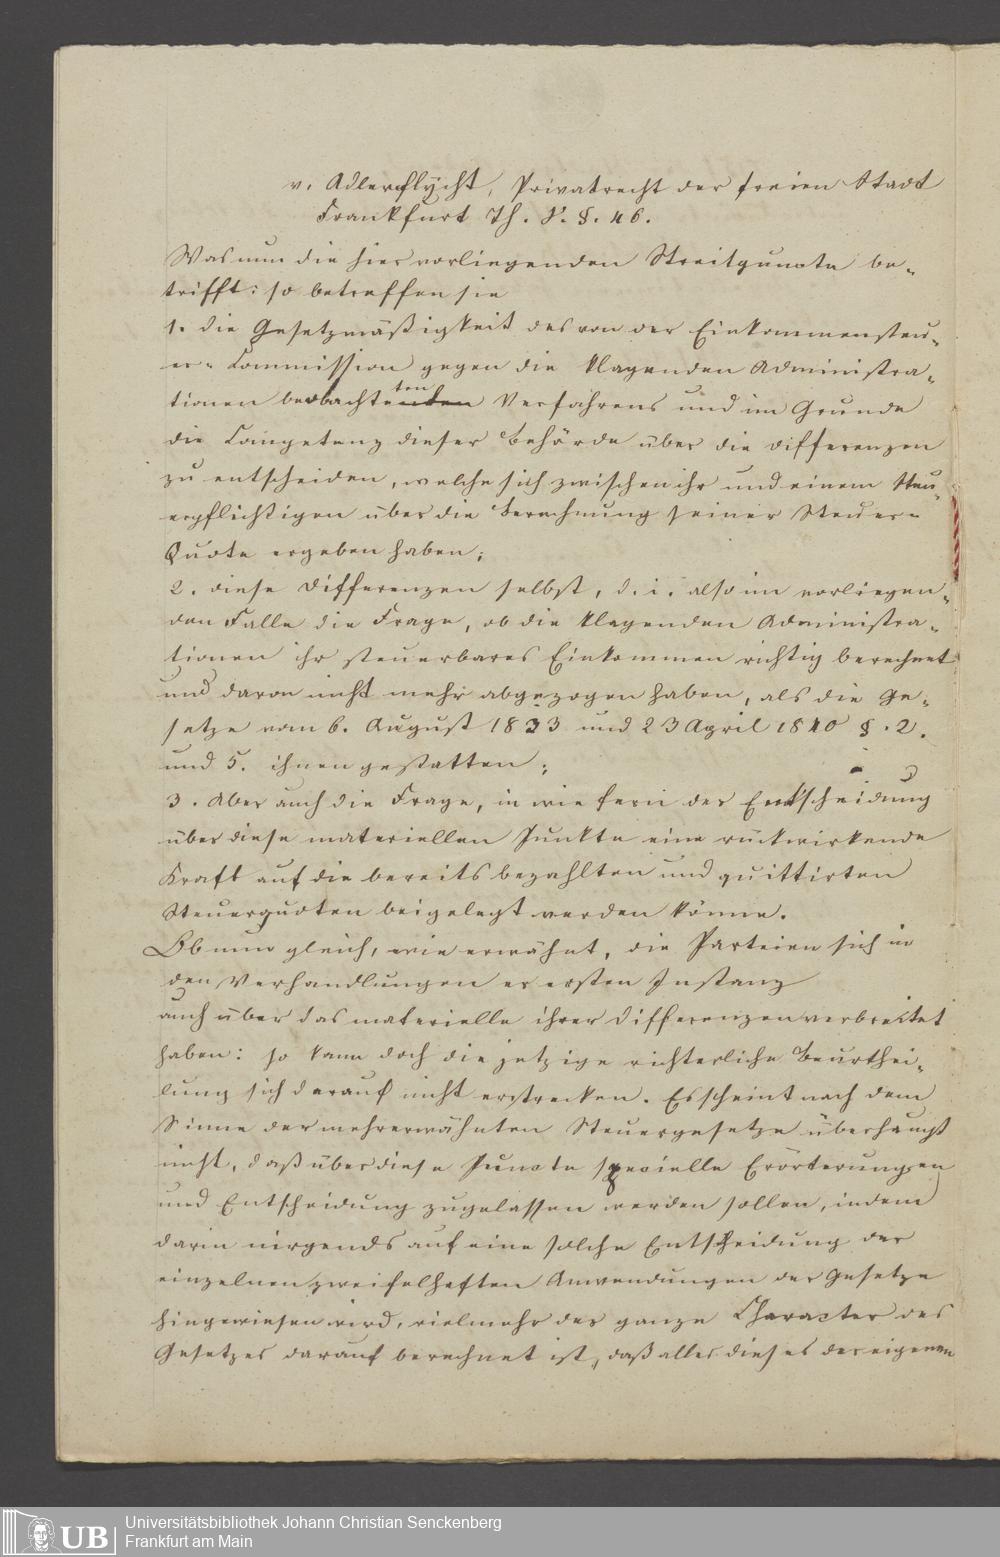 v. Adlerflycht, Privatrecht der freien Stadt
Frankfurt Th. V. §. 46.
Was nun die hier vorliegenden Streitpuncte be-
trifft: so betreffen sie
1. die Gesetzmäßigkeit des von der Einkommensteu-
er-Commission gegen die klagenden Administra-
tionen beobachteten Verfahrens und im Grunde
die Competenz dieser Behörde über die Differenzen
zu entscheiden, welche sich zwischen ihr und einem Steu-
erpflichtigen über die Berechnung seiner Steuer-
Quote ergeben haben;
2. diese Differenzen selbst, d. i. also im vorliegen-
den Falle die Frage, ob die klagenden Administra-
tionen ihr steuerbares Einkommen richtig berechnet
und davon nicht mehr abgezogen haben, als die Ge-
setze vom 6. August 1833 und 23 April 1840 §. 2.
und 5. ihnen gestatten;
3. Aber auch die Frage, in wie fern der Entscheidung
über diese materiellen Punkte eine rückwirkende
Kraft auf die bereits bezahlten und quittirten
Steuerquoten beigelegt werden könne.
Ob nun gleich, wie erwähnt, die Parteien sich in
den Verhandlungen er ersten Instanz
auch über das materielle ihrer Differenzen verbreitet
haben: so kann doch die jetzige richterliche Beurthei-
lung sich darauf nicht erstrecken. Es scheint nach dem
Sinne der mehrerwähnten Steuergesetze überhaupt
nicht, daß über diese Puncte specielle Erörterungen
und Entscheidung zugelassen werden sollen, indem
darin nirgends auf eine solche Entscheidung der
einzelnen zweifelhaften Anwendungen der Gesetze
hingewiesen wird, vielmehr der ganze Character des
Gesetzes darauf berechnet ist, daß alles dieses der eigenen
UB
Universitätsbibliothek Johann Christian Senckenberg
Frankfurt am Main